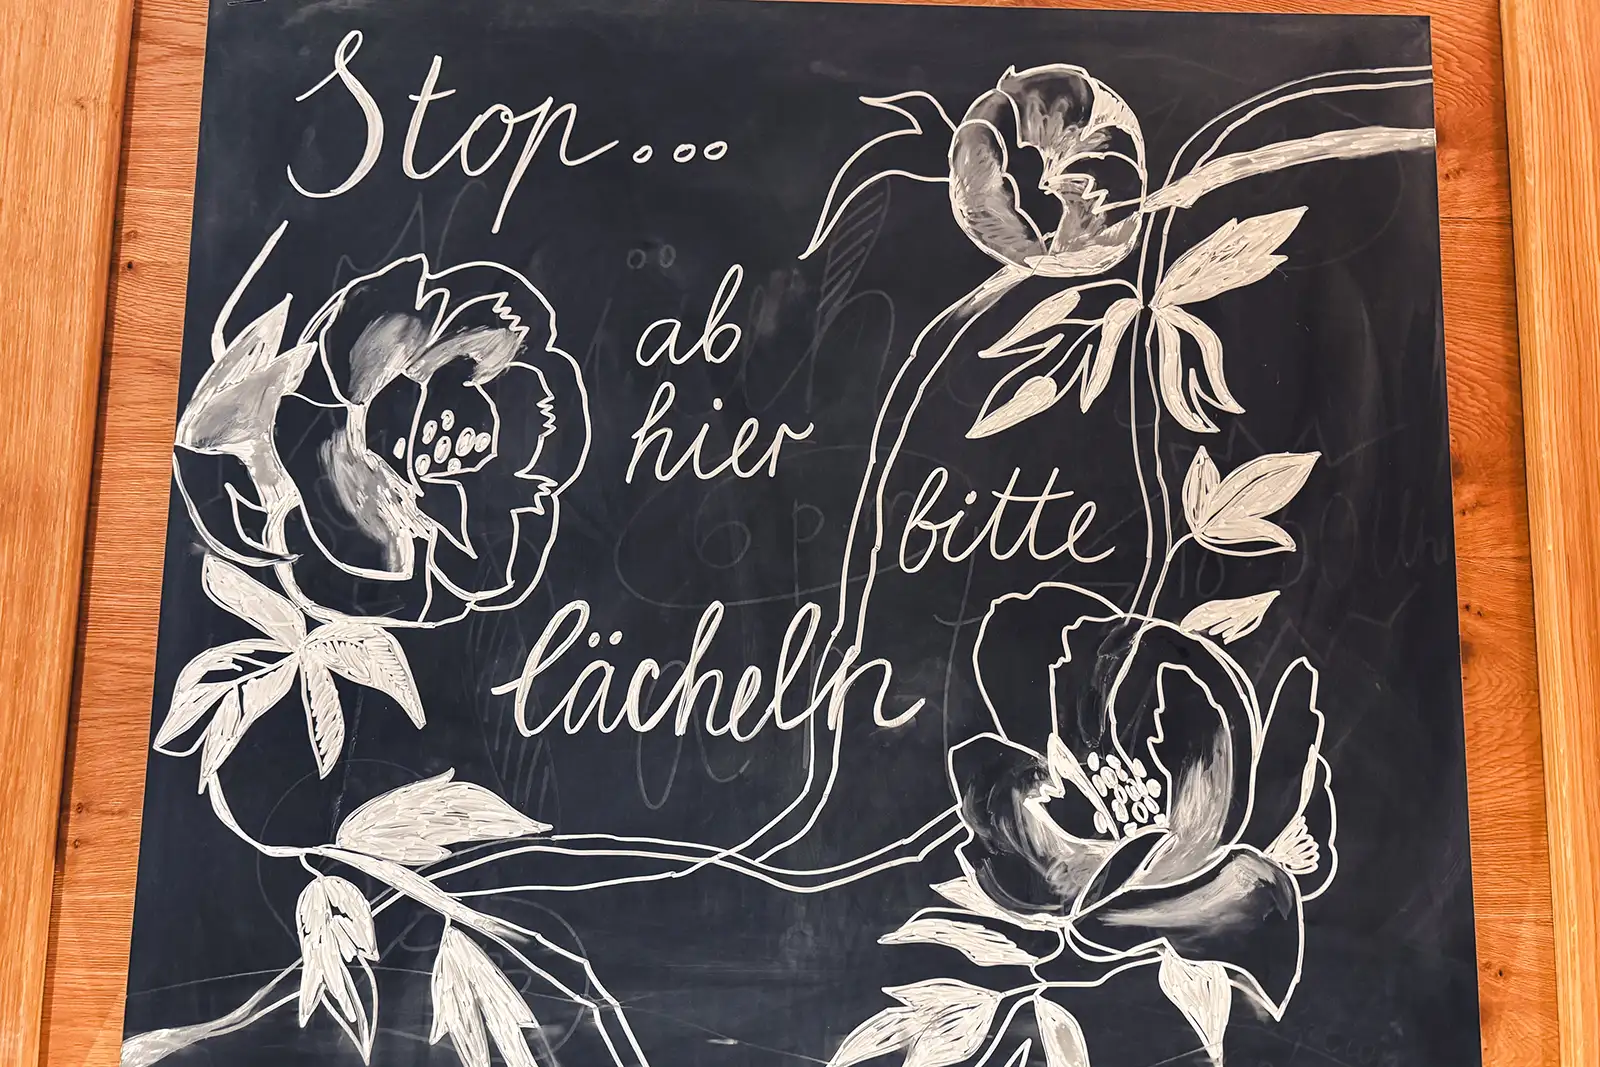 Stop...
ab
hier
bitte
lächeln